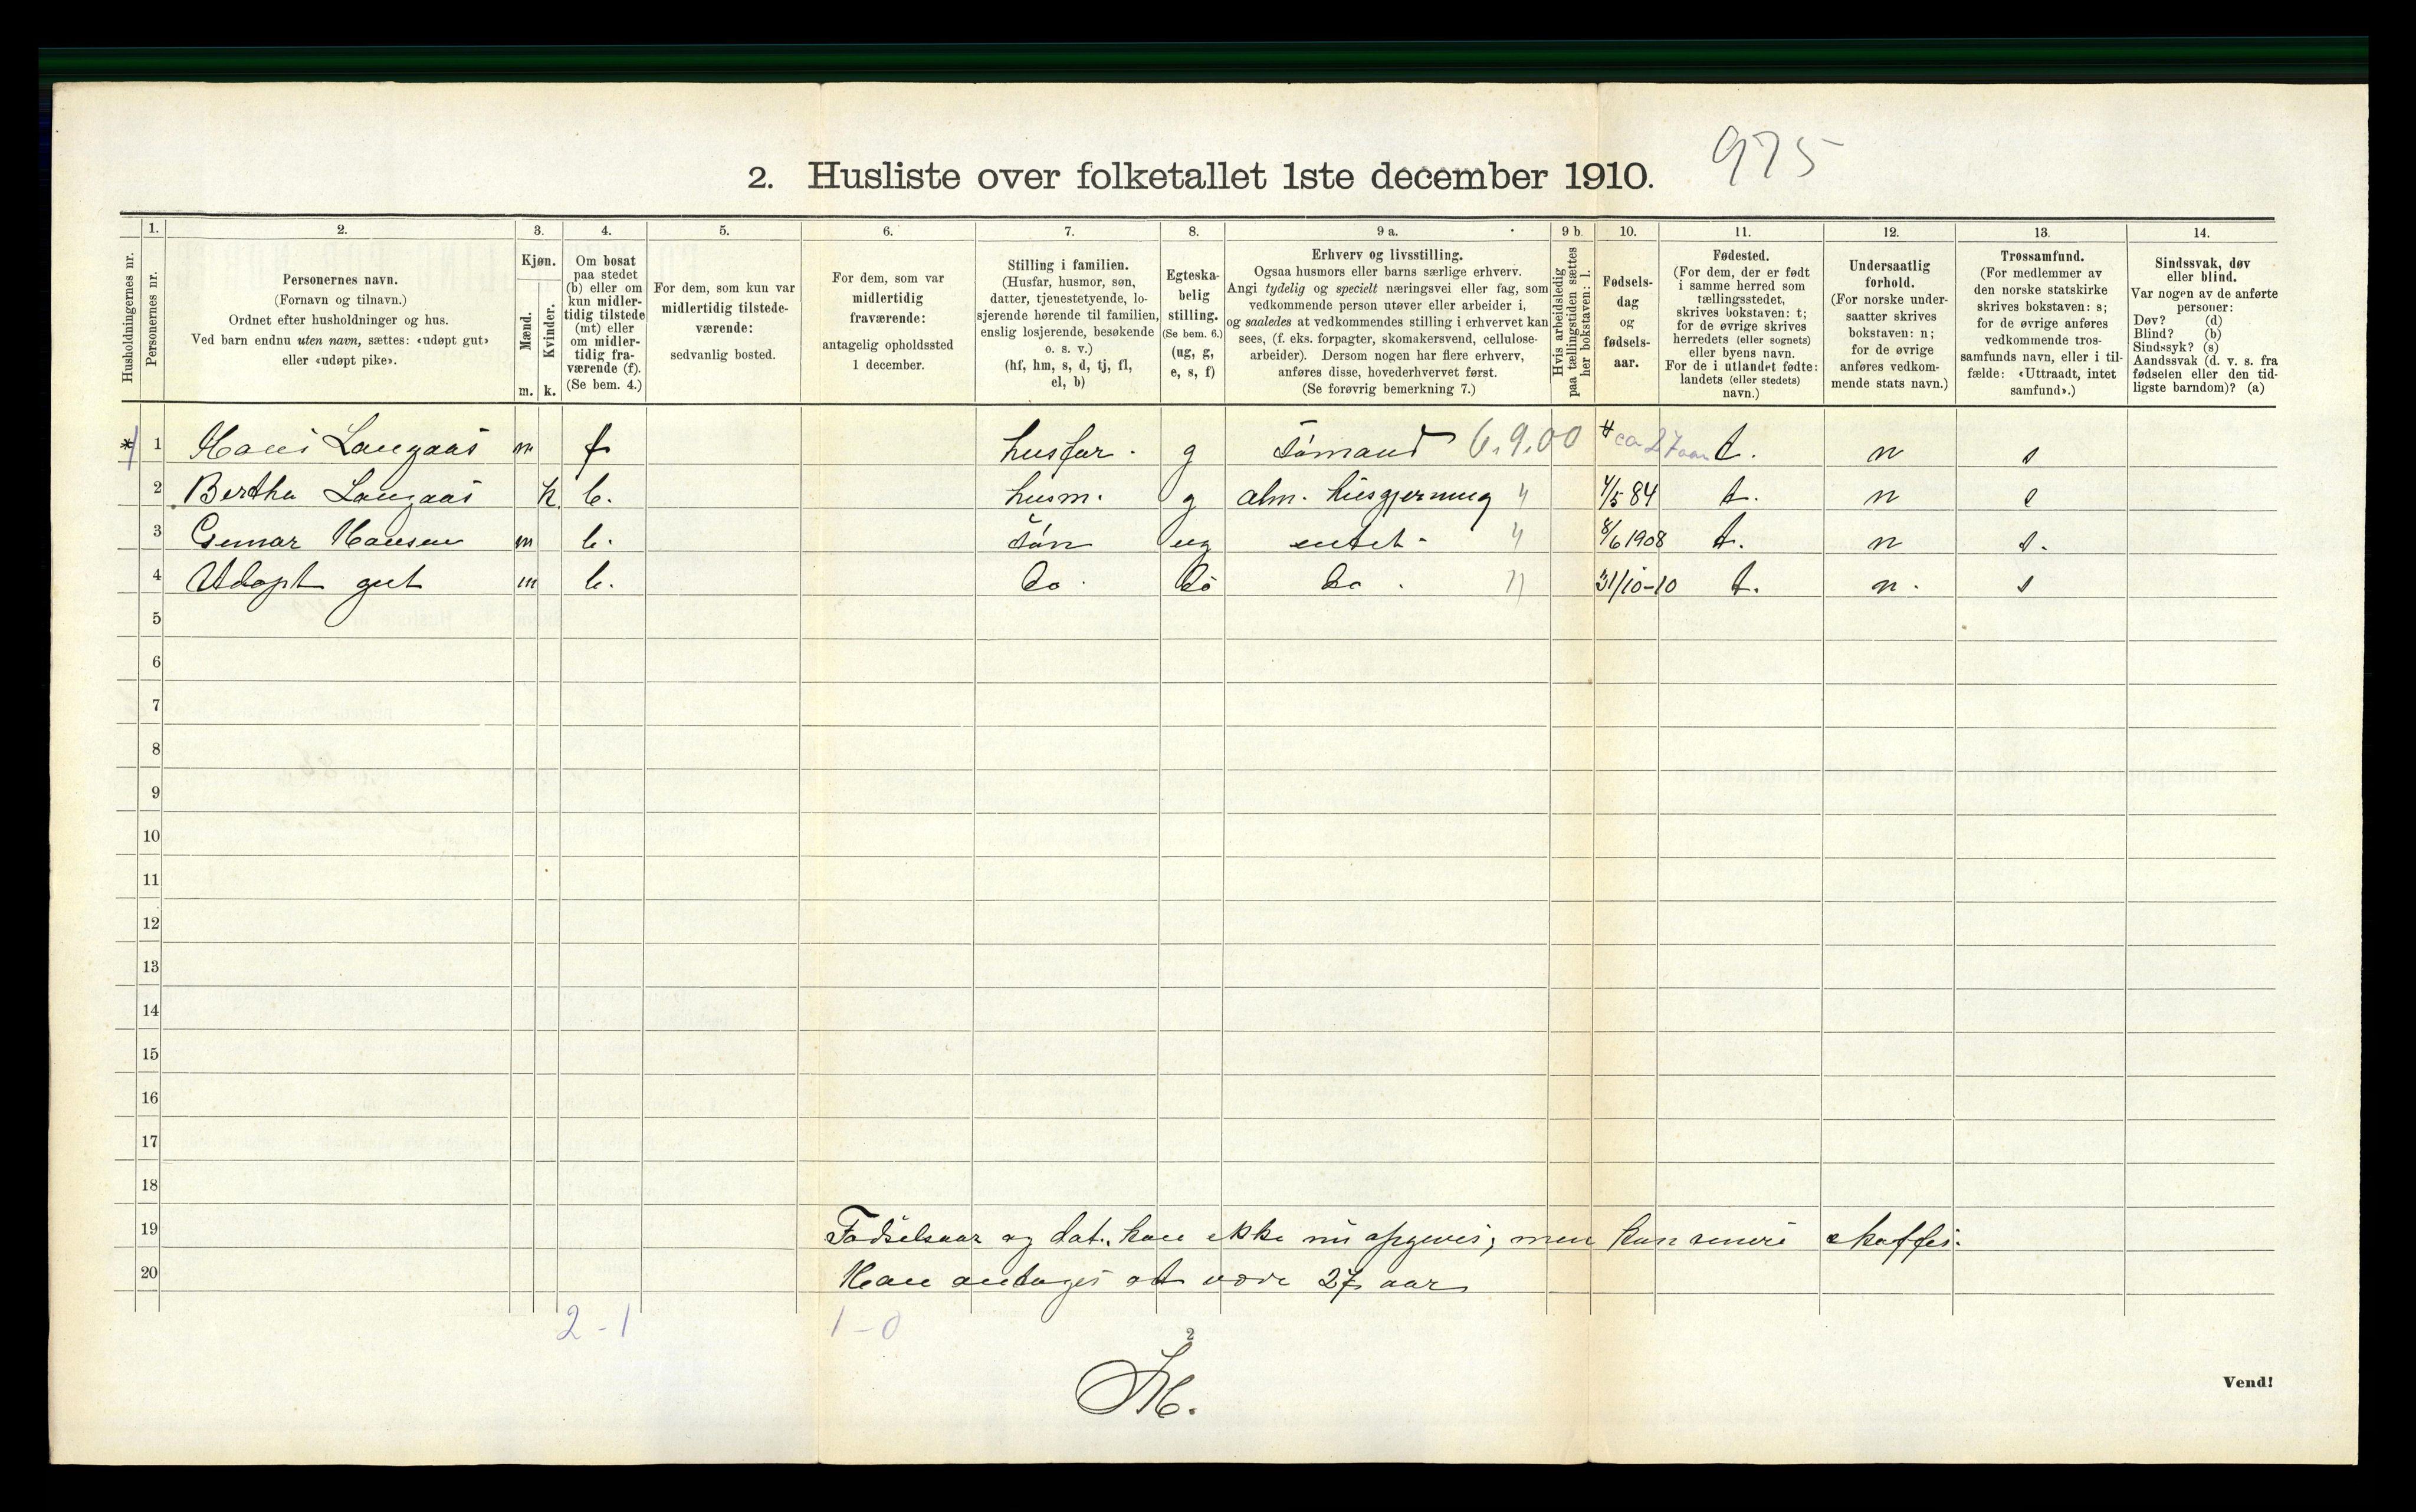 975
2. Husliste over folketallet 1ste december 1910.
Husholdningernes nr.
1.
Personernes nr.
2.
Personernes navn.
(Fornavn og tilnavn.)
Ordnet efter husholdninger og hus.
Ved barn endnu uten navn, sættes: «udøpt gut»
eller «udøpt pike».
3.
Kjøn.
Mænd.
Kvinder.
m. k.
4.
Om bosat
paa stedet
(b) eller om
kun midler-
tidig tilstede
(mt) eller
om midler-
tidig fra-
værende (f).
(Se bem. 4.)
5.
For dem, som kun var
midlertidig tilstede-
værende:
sedvanlig bosted.
6.
For dem, som var
midlertidig
fraværende:
antagelig opholdssted
1 december.
7.
Stilling i familien.
(Husfar, husmor, søn,
datter, tjenestetyende, lo-
sjerende hørende til familien,
enslig losjerende, besøkende
o. s. v.)
(hf, hm, s, d, tj, fl,
el, b)
8.
Egteska-
belig
stilling.
(Se bem. 6.)
(ug, g,
e, s, f)
9 a.
Erhverv og livsstilling.
Ogsaa husmors eller barns særlige erhverv.
Angi tydelig og specielt næringsvei eller fag, som
vedkommende person utøver eller arbeider i,
og saaledes at vedkommendes stilling i erhvervet kan
sees, (f. eks. forpagter, skomakersvend, cellulose-
arbeider). Dersom nogen har flere erhverv,
anføres disse, hovederhvervet først.
(Se forøvrig bemerkning 7.)
9 b.
Hvis arbeidsledig
paa tællingstiden sættes
her bokstaven: l.
10.
Fødsels-
dag
og
fødsels-
aar.
11.
Fødested.
(For dem, der er født
i samme herred som
tællingsstedet,
skrives bokstaven: t;
for de øvrige skrives
herredets (eller sognets)
eller byens navn.
For de i utlandet fødte:
landets (eller stedets)
navn.)
12.
Undersaatlig
forhold.
(For norske under-
saatter skrives
bokstaven: n;
for de øvrige
anføres vedkom-
mende stats navn.)
13.
Trossamfund.
(For medlemmer av
den norske statskirke
skrives bokstaven: s;
for de øvrige anføres
vedkommende tros-
samfunds navn, eller i til-
fælde: «Uttraadt, intet
samfund».)
14.
Sindssvak, døv
eller blind.
Var nogen av de anførte
personer:
Døv? (d)
Blind? (b)
Sindssyk? (s)
Aandssvak (d. v. s. fra
fødselen eller den tid-
ligste barndom)? (a)
* 1 1 Hans Langaas m f husfar. g Sömand 6.9.00 ca 27 aar t. n s
2 Bertha Langaas k b. husm. g alm. husgjerning " 4/5 84 t. n s
3 Gunnar Hansen m b. Sön ug entet. " 8/6 1908 t. n s.
4 Udøpt gut m b. do. do do. " 31/10-10 t. n. s
5
6
7
8
9
10
11
12
13
14
15
16
17
18
19 Fødselsaar og dat. kan ikke nu opgives, men kan senere skaffes.
20 Han antages at være 27 aar
2-1 1-0
2
H.
Vend!